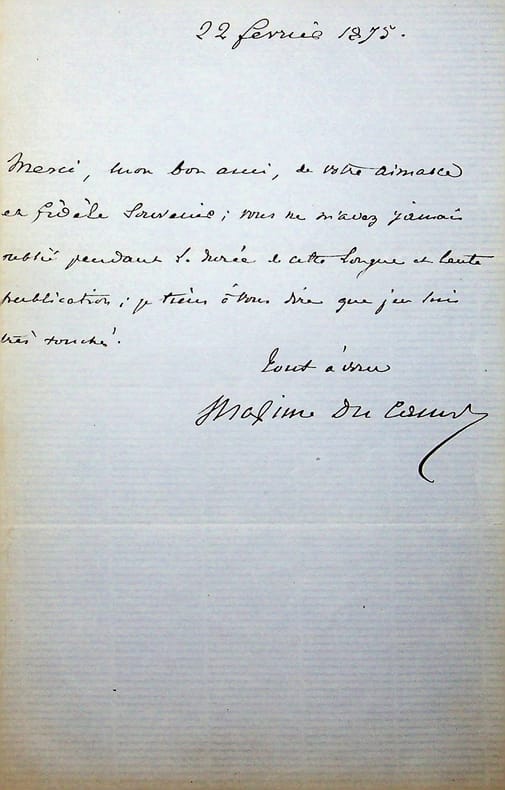 22 février 1875.
Merci, mon bon ami, de votre aimable
et fidèle souvenir ; vous ne m'avez jamais
oublié pendant la durée de cette longue et lente
publication ; je tiens à vous dire que j'en suis
très touché.
Tout à vous
Maxime Du Camp